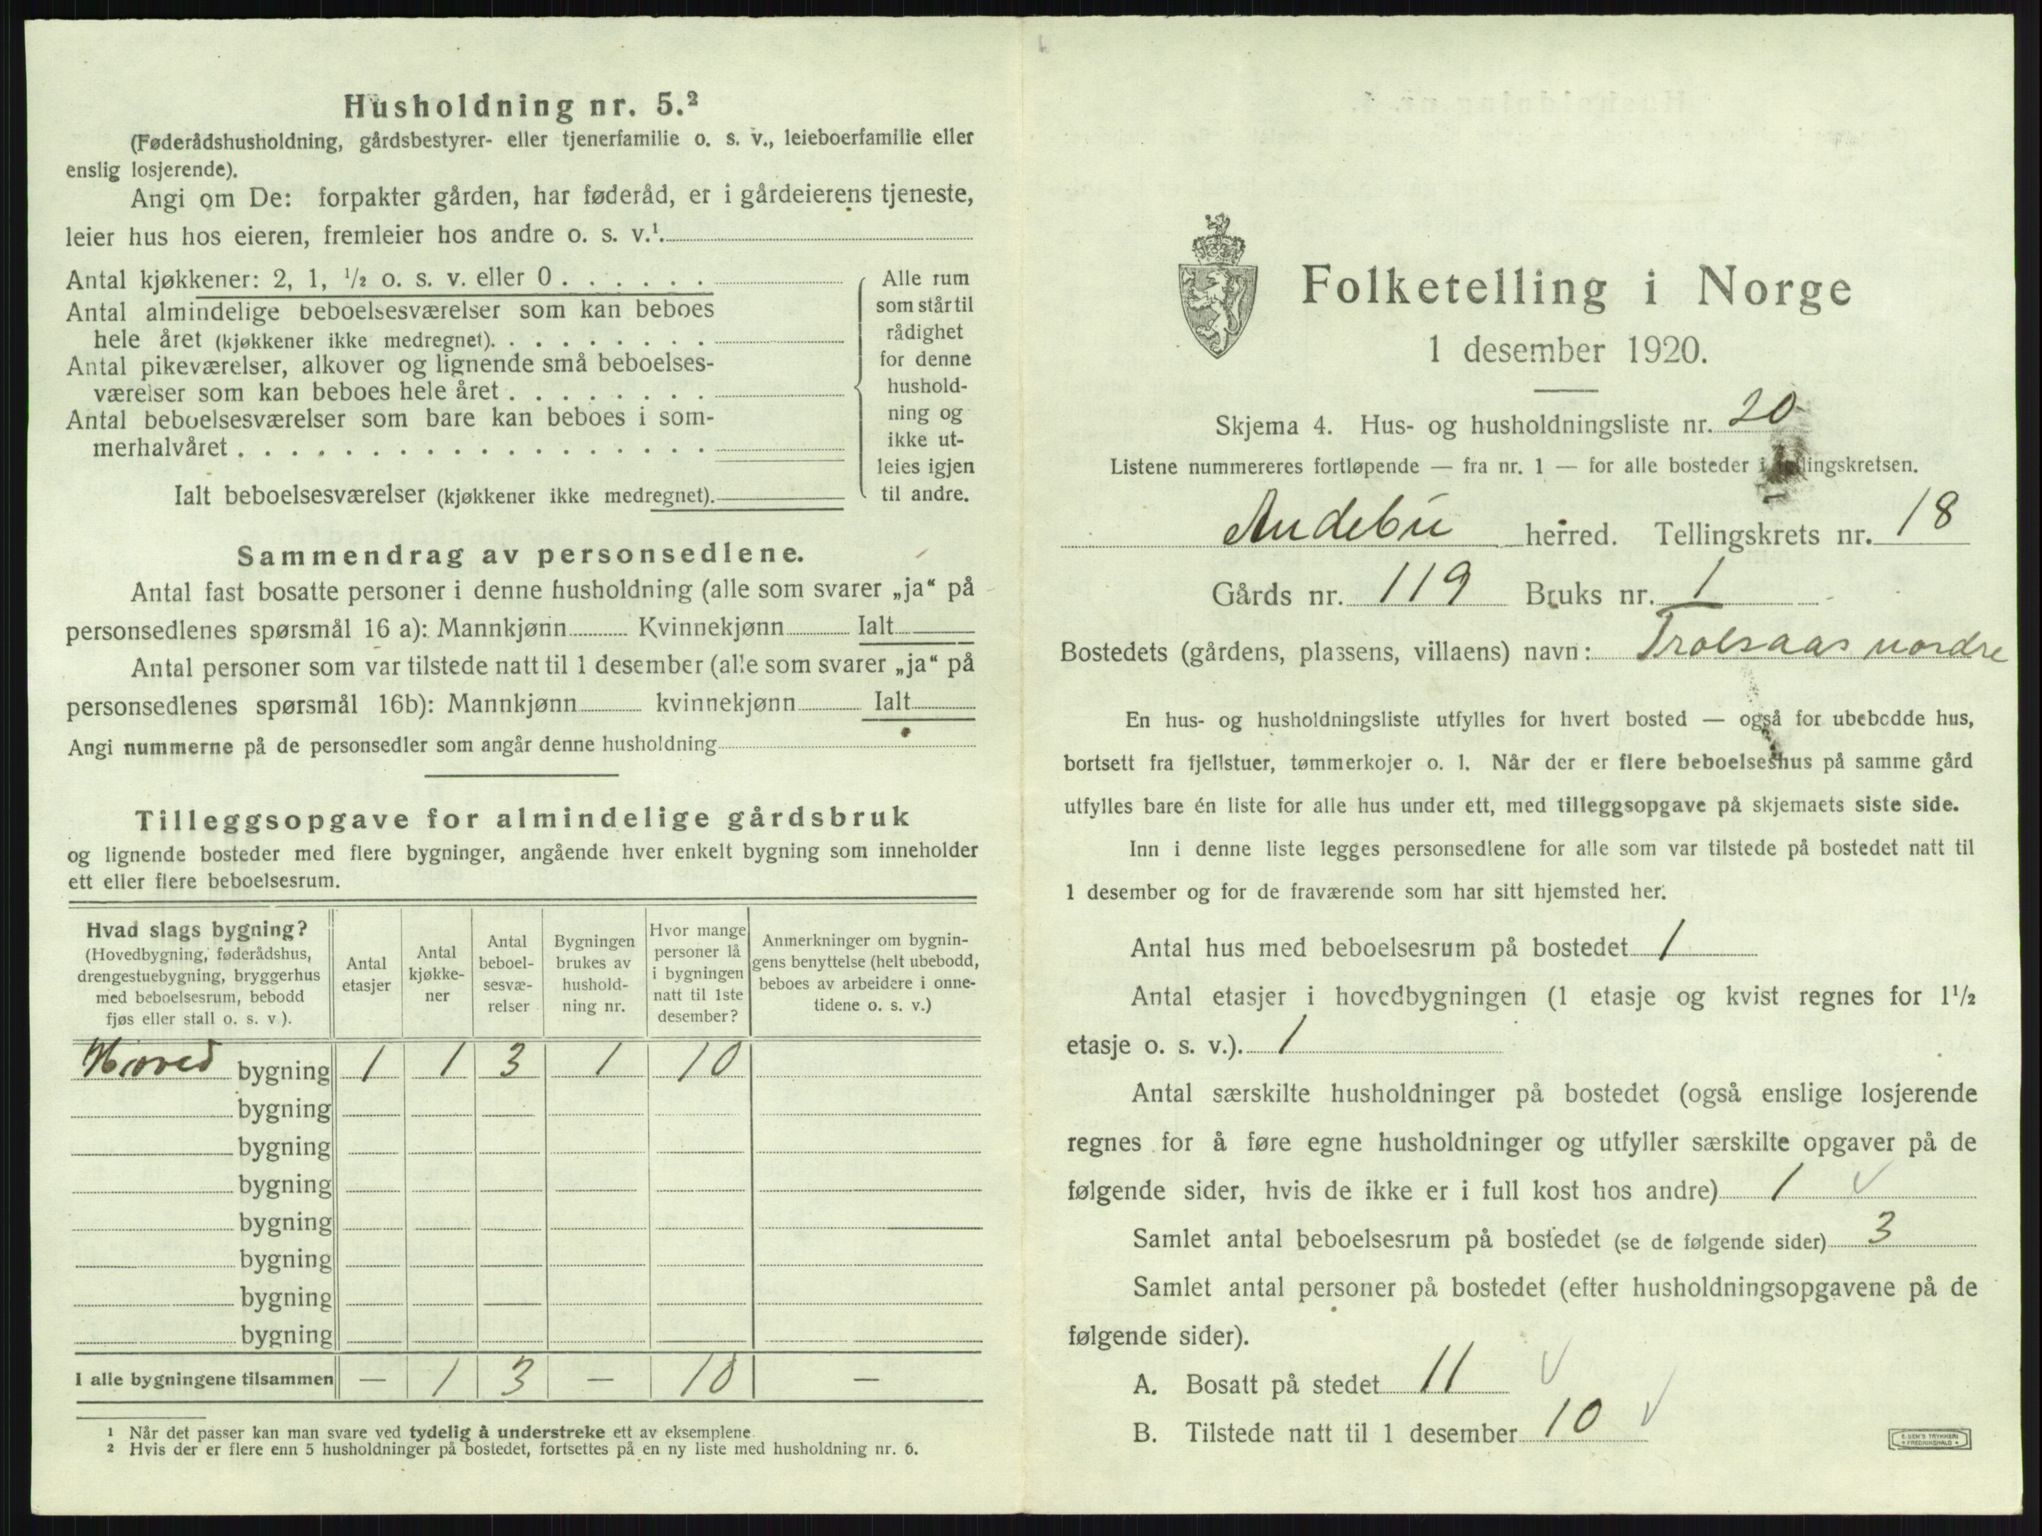 Husholdning nr. 5.²
(Føderådshusholdning, gårdsbestyrer- eller tjenerfamilie o. s. v., leieboerfamilie eller
enslig losjerende).
Angi om De: forpakter gården, har føderåd, er i gårdeierens tjeneste,
leier hus hos eieren, fremleier hos andre o. s. v.¹
Antal kjøkkener: 2, 1, ½ o. s. v. eller 0
Antal almindelige beboelsesværelser som kan beboes
hele året (kjøkkener ikke medregnet).
Antal pikeværelser, alkover og lignende små beboelses-
værelser som kan beboes hele året
Antal beboelsesværelser som bare kan beboes i som-
merhalvåret
Ialt beboelsesværelser (kjøkkener ikke medregnet).
Alle rum
som står til
rådighet
for denne
hushold-
ning og
ikke ut-
leies igjen
til andre.
Sammendrag av personsedlene.
Antal fast bosatte personer i denne husholdning (alle som svarer „ja“ på
personsedlenes spørsmål 16 a): Mannkjønn Kvinnekjønn Ialt
Antal personer som var tilstede natt til 1 desember (alle som svarer „ja“ på
personsedlenes spørsmål 16b): Mannkjønn kvinnekjønn Ialt
Angi nummerne på de personsedler som angår denne husholdning
Tilleggsopgave for almindelige gårdsbruk
og lignende bosteder med flere bygninger, angående hver enkelt bygning som inneholder
ett eller flere beboelsesrum.
Hvad slags bygning?
(Hovedbygning, føderådshus,
drengestuebygning, bryggerhus
med beboelsesrum, bebodd
fjøs eller stall o. s. v.).
Antal
etasjer
Antal
kjøkke-
ner
Antal
beboel-
sesvæ-
relser
Bygningen
brukes av
hushold-
ning nr.
Hvor mange
personer lå
i bygningen
natt til 1ste
desember?
Anmerkninger om bygnin-
gens benyttelse (helt ubebodd,
beboes av arbeidere i onne-
tidene o. s. v.)
Hoved bygning 1 1 3 1 10
bygning
bygning
bygning
bygning
bygning
bygning
bygning
I alle bygningene tilsammen — 1 3 — 10 —
¹ Når det passer kan man svare ved tydelig å understreke ett av eksemplene.
² Hvis der er flere enn 5 husholdninger på bostedet, fortsettes på en ny liste med husholdning nr. 6.
Folketelling i Norge
1 desember 1920.
Skjema 4. Hus- og husholdningsliste nr. 20
Listene nummereres fortløpende — fra nr. 1 — for alle bosteder i tellingskretsen.
Andebu herred. Tellingskrets nr. 18
Gårds nr. 119 Bruks nr. 1
Bostedets (gårdens, plassens, villaens) navn: Trolsaas nordre
En hus- og husholdningsliste utfylles for hvert bosted — også for ubebodde hus,
bortsett fra fjellstuer, tømmerkojer o. l. Når der er flere beboelseshus på samme gård
utfylles bare én liste for alle hus under ett, med tilleggsopgave på skjemaets siste side.
Inn i denne liste legges personsedlene for alle som var tilstede på bostedet natt til
1 desember og for de fraværende som har sitt hjemsted her.
Antal hus med beboelsesrum på bostedet 1
Antal etasjer i hovedbygningen (1 etasje og kvist regnes for 1½
etasje o. s. v.). 1
Antal særskilte husholdninger på bostedet (også enslige losjerende
regnes for å føre egne husholdninger og utfyller særskilte opgaver på de
følgende sider, hvis de ikke er i full kost hos andre) 1 ✓
Samlet antal beboelsesrum på bostedet (se de følgende sider) 3
Samlet antal personer på bostedet (efter husholdningsopgavene på de
følgende sider).
A. Bosatt på stedet 11 ✓
B. Tilstede natt til 1 desember 10 ✓